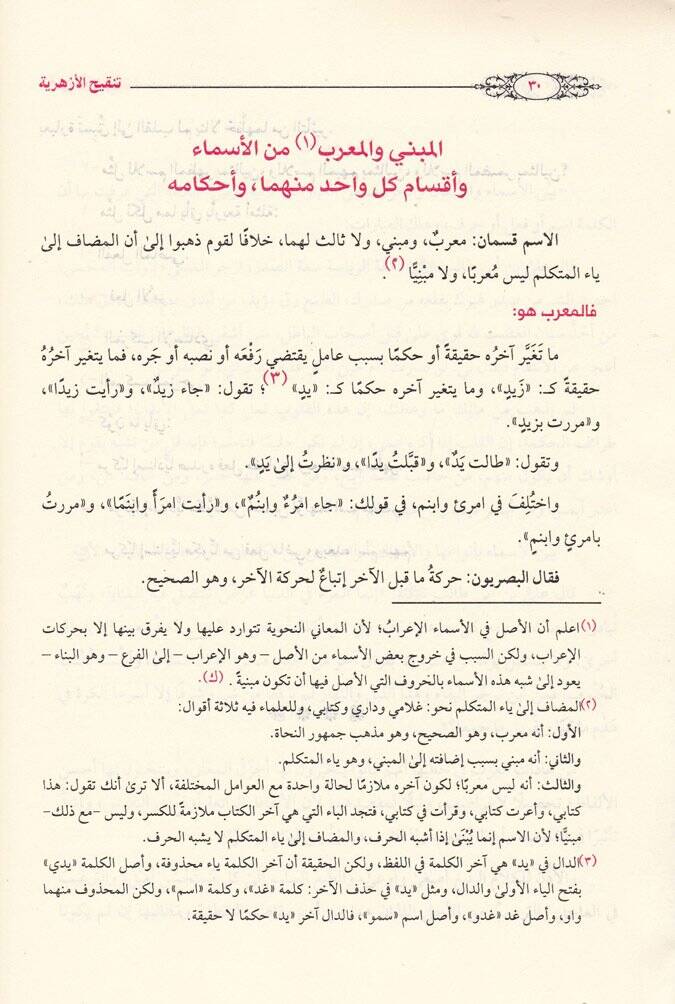 ٣٠
تنقيح الأزهرية
المبني والمعرب(١) من الأسماء
وأقسام كل واحد منهما، وأحكامه
الاسم قسمان: معربٌ، ومبني، ولا ثالث لهما، خلافًا لقوم ذهبوا إلىٰ أن المضاف إلىٰ
ياء المتكلم ليس مُعربًا، ولا مبْنِيًّا (٢).
فالمعرب هو:
ما تَغَيَّر آخرُه حقيقةً أو حكمًا بسبب عاملٍ يقتضي رَفْعَه أو نصبه أو جَره، فما يتغير آخرُهُ
حقيقةً كـ: «زَيدٍ»، وما يتغير آخره حكمًا كـ: «يدٍ» (٣)؛ تقول: «جاء زيدٌ»، و«رأيت زيدًا»،
و«مررت بزيدٍ».
وتقول: «طالت يَدٌ»، و«قبَّلتُ يدًا»، و«نظرتُ إلىٰ يَدٍ».
واختُلِفَ في امرئ وابنم، في قولك: «جاء امرُءٌ وابنُمٌ»، و«رأيت امرَأً وابنَمًا»، و«مررتُ
بامرئٍ وابنمٍ».
فقال البصريون: حركةُ ما قبل الآخر إتباعٌ لحركة الآخر، وهو الصحيح.
(١) اعلم أن الأصل في الأسماء الإعرابُ؛ لأن المعاني النحوية تتوارد عليها ولا يفرق بينها إلا بحركات
الإعراب، ولكن السبب في خروج بعض الأسماء من الأصل – وهو الإعراب – إلىٰ الفرع – وهو البناء –
يعود إلىٰ شبه هذه الأسماء بالحروف التي الأصل فيها أن تكون مبنيةً . (ك).
(٢) المضاف إلىٰ ياء المتكلم نحو: غلامي وداري وكتابي، وللعلماء فيه ثلاثة أقوال:
الأول: أنه معرب، وهو الصحيح، وهو مذهب جمهور النحاة.
والثاني: أنه مبني بسبب إضافته إلىٰ المبني، وهو ياء المتكلم.
والثالث: أنه ليس معربًا؛ لكون آخره ملازمًا لحالة واحدة مع العوامل المختلفة، ألا ترىٰ أنك تقول: هذا
كتابي، وأعرت كتابي، وقرأت في كتابي، فتجد الباء التي هي آخر الكتاب ملازمةً للكسر، وليس –مع ذلك–
مبنيًّا؛ لأن الاسم إنما يُبْنَىٰ إذا أشبه الحرف، والمضاف إلىٰ ياء المتكلم لا يشبه الحرف.
(٣) الدال في «يد» هي آخر الكلمة في اللفظ، ولكن الحقيقة أن آخر الكلمة ياء محذوفة، وأصل الكلمة «يدي»
بفتح الياء الأولىٰ والدال، ومثل «يد» في حذف الآخر: كلمة «غد»، وكلمة «اسم»، ولكن المحذوف منهما
واو، وأصل غد «غدو»، وأصل اسم «سمو»، فالدال آخر «يد» حكمًا لا حقيقة.